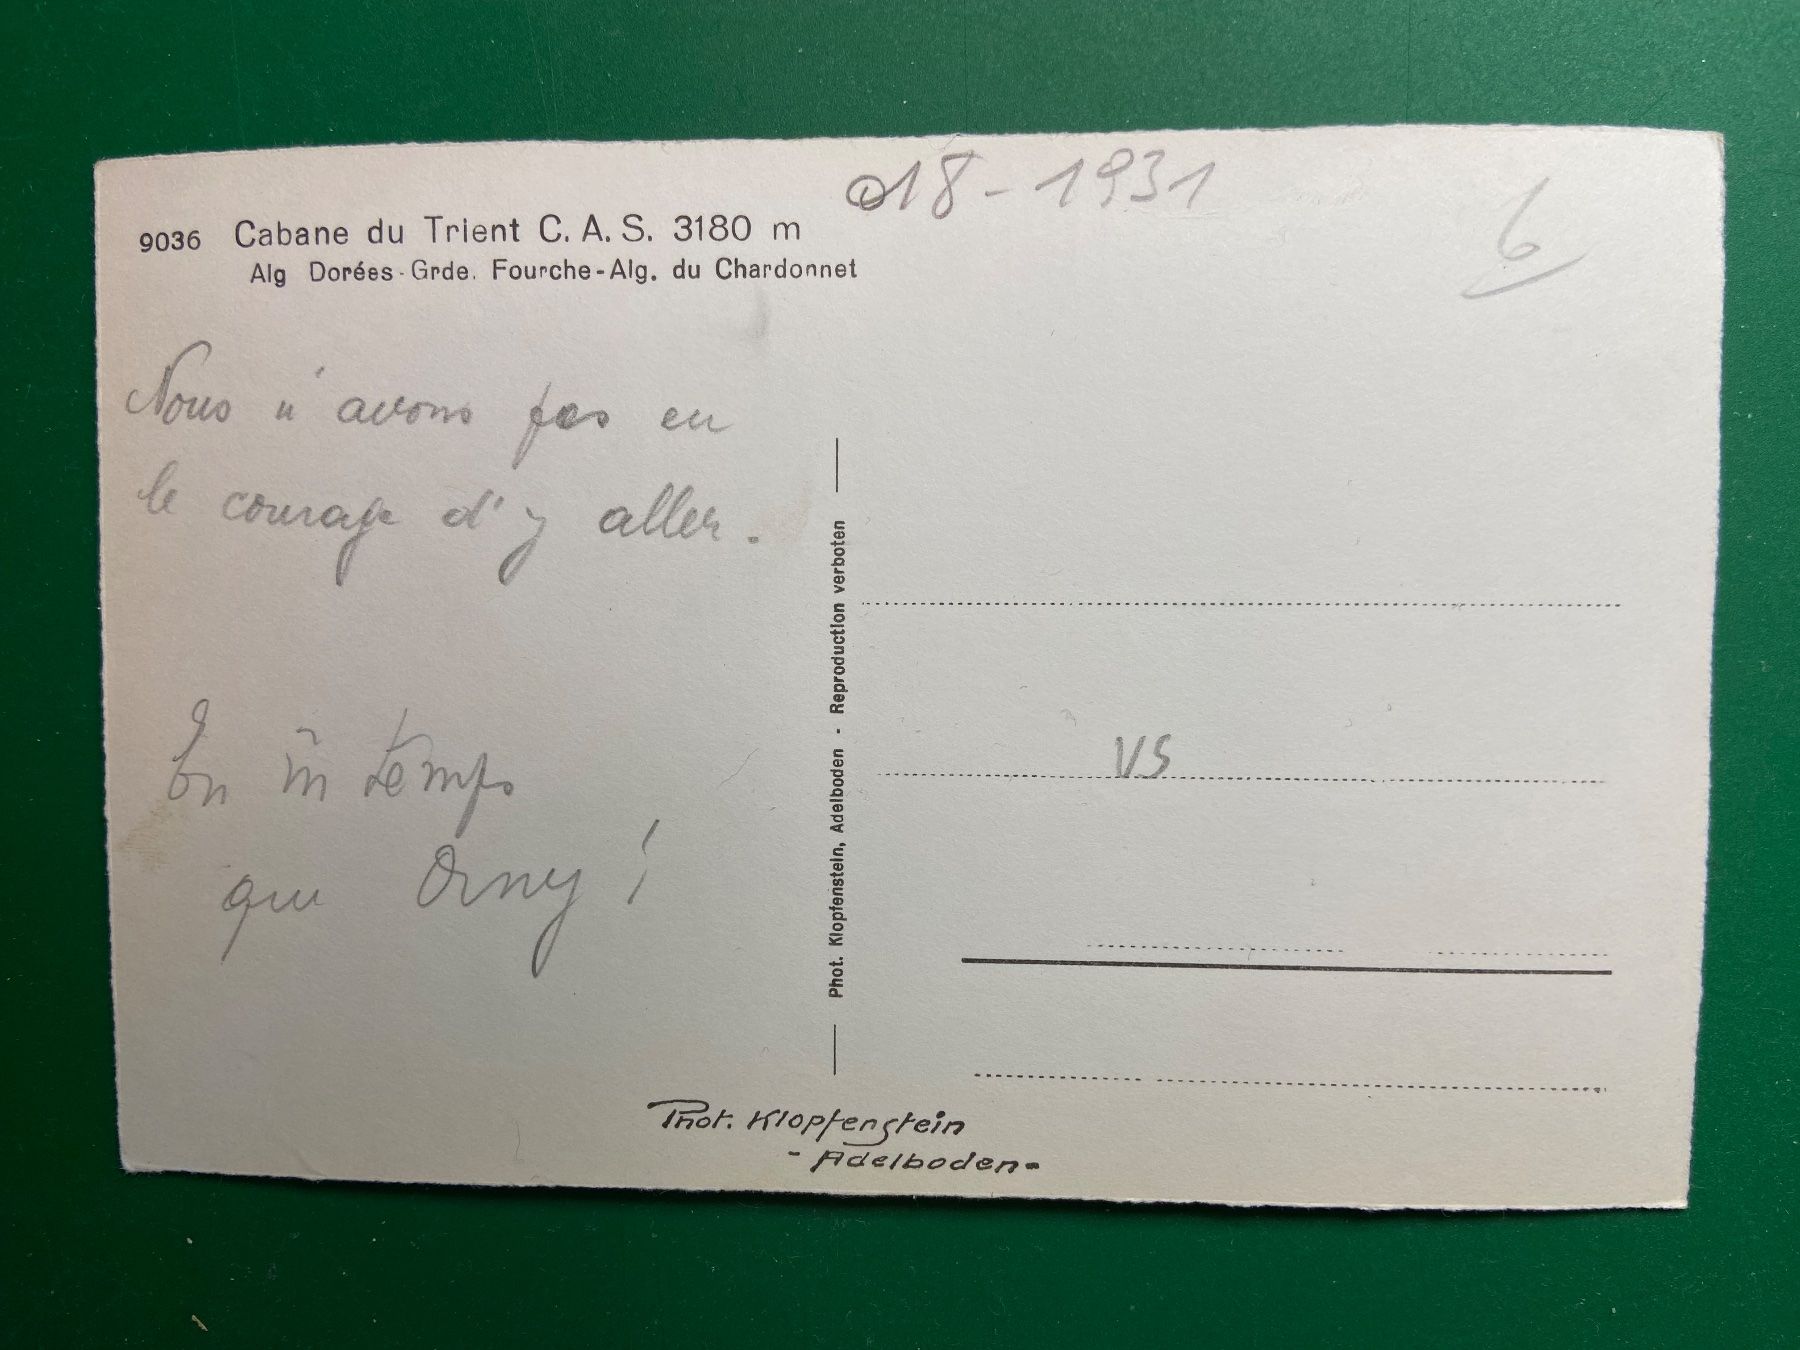 18-1931
6
9036 Cabane du Trient C. A. S. 3180 m
Alg Dorées-Grde. Fourche-Alg. du Chardonnet
Nous n'avons pas eu
le courage d'y aller.
En m temps
que Orny !
VS
Phot. Klopfenstein, Adelboden - Reproduction verboten
Phot. Klopfenstein
- Adelboden -